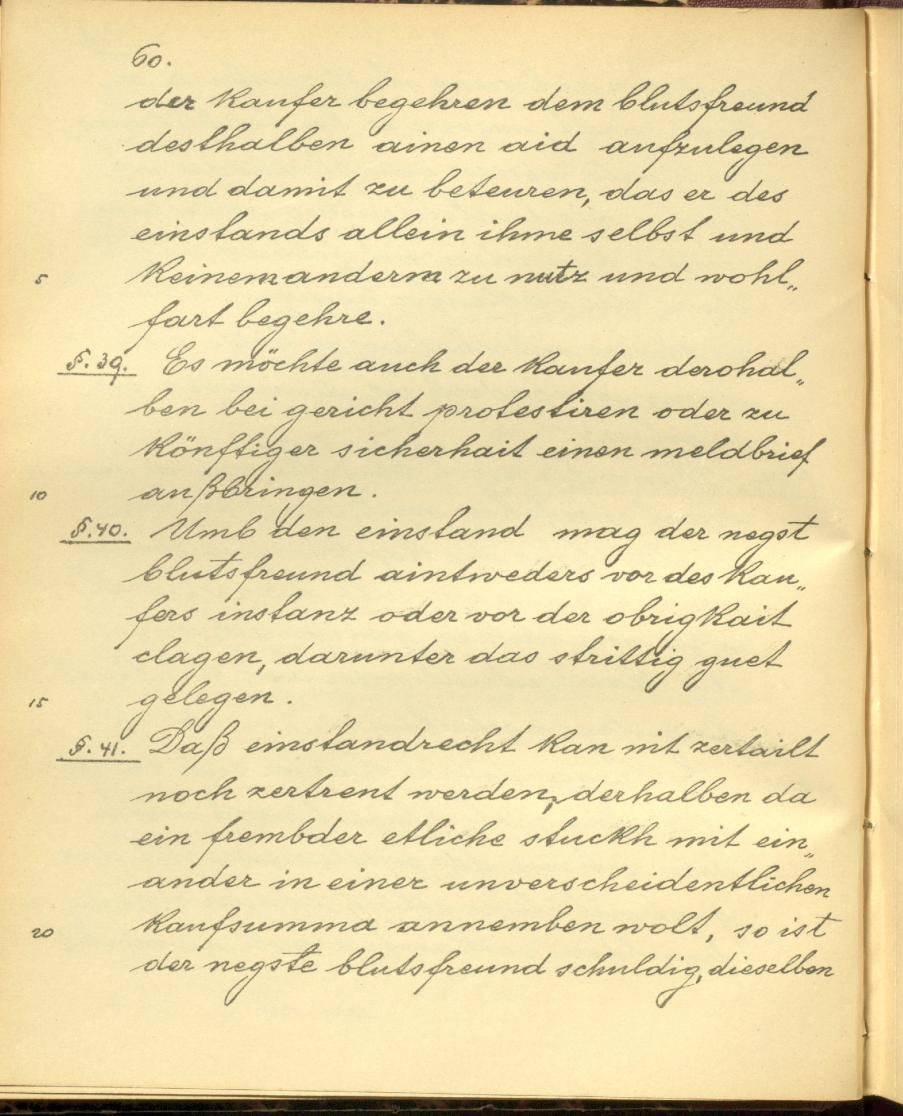 60.
der kaufer begehren dem blutsfreund
desthalben ainen aid aufzulegen
und damit zu beteuren, das er des
einstands allein ihme selbst und
5 keinem anderm zu nutz und wohl„
fart begehre.
§. 39. Es möchte auch der kaufer derohal„
ben bei gericht protestiren oder zu
könftiger sicherhait einen meldbrief
10 außbringen.
§. 40. Umb den einstand mag der negst
blutsfreund aintweders vor des kau„
fers instanz oder vor der obrigkait
clagen, darunter das strittig guet
15 gelegen.
§. 41. Daß einstandrecht kan nit zertailt
noch zertrent werden, derhalben da
ein frembder etliche stuckh mit ein„
ander in einer unverscheidentlichen
20 kaufsumma annemben wolt, so ist
der negste blutsfreund schuldig, dieselben